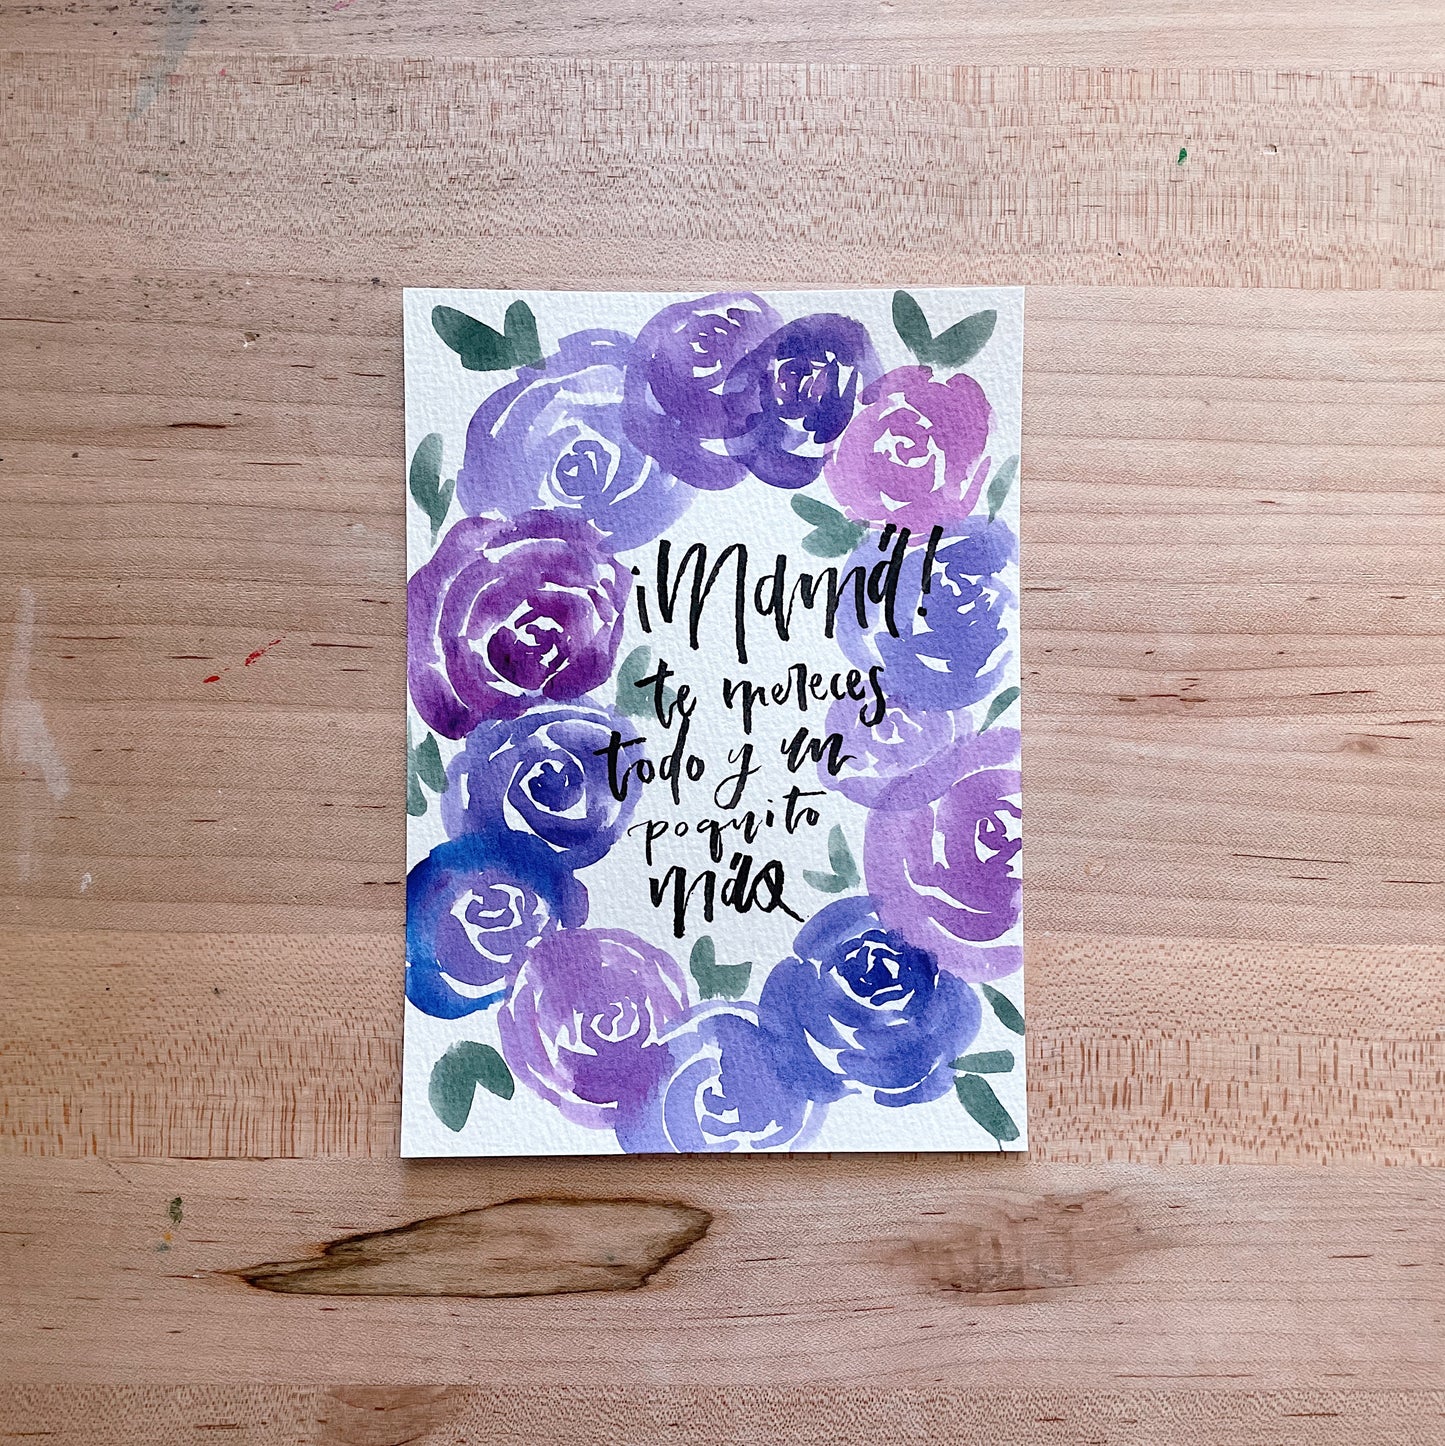 ¡Mamá!
te mereces
todo y un
poquito
más